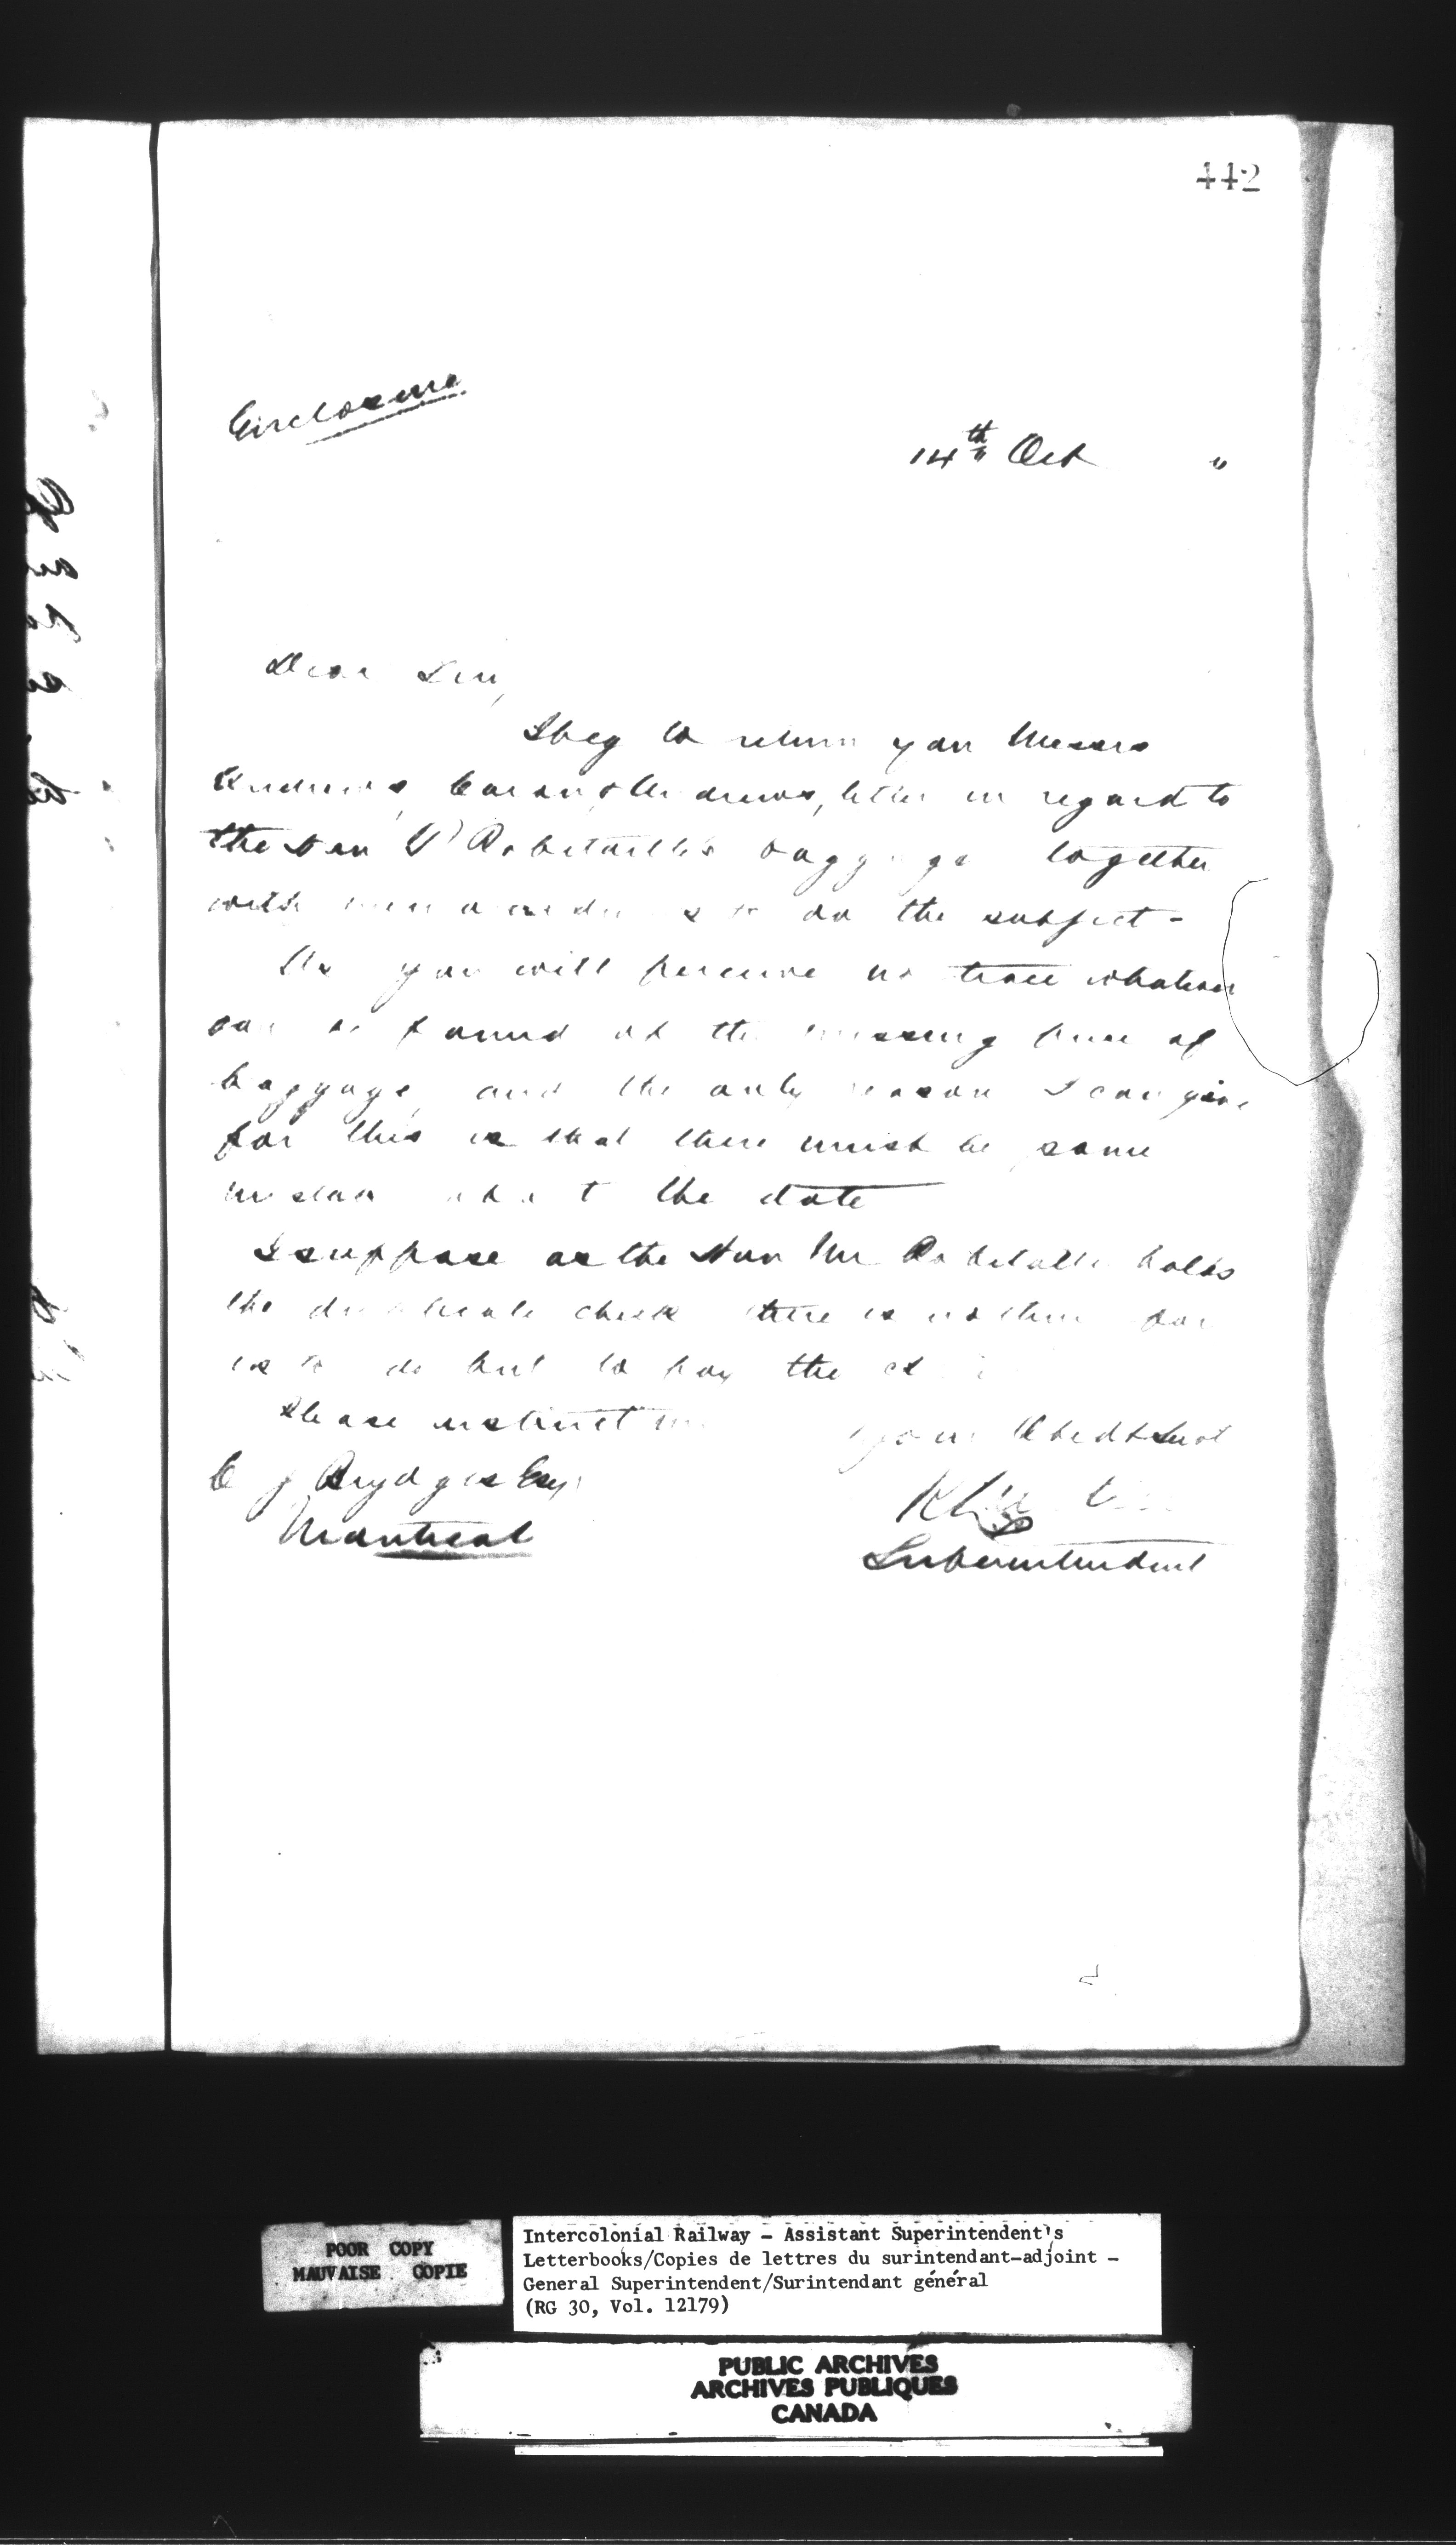 442
Enclosure
14th Oct "
Dear Sir,
I beg to return you Messrs
Andrews, Caron, & Andrews, letter in regard to
the Hon Robitaille's baggage together
with on the subject -
As you will perceive no trace whatever
can be found of the missing piece of
baggage, and the only reason I can give
for this is that there must be some
about the date
I suppose as the Hon Mr Robitaille holds
the duplicate check there is nothing for
us to do but to pay the
Please instruct me
Your Obedt Servt
C J Brydges Esq
Montreal
Superintendent
POOR COPY
MAUVAISE COPIE
Intercolonial Railway - Assistant Superintendent's
Letterbooks/Copies de lettres du surintendant-adjoint -
General Superintendent/Surintendant général
(RG 30, Vol. 12179)
PUBLIC ARCHIVES
ARCHIVES PUBLIQUES
CANADA